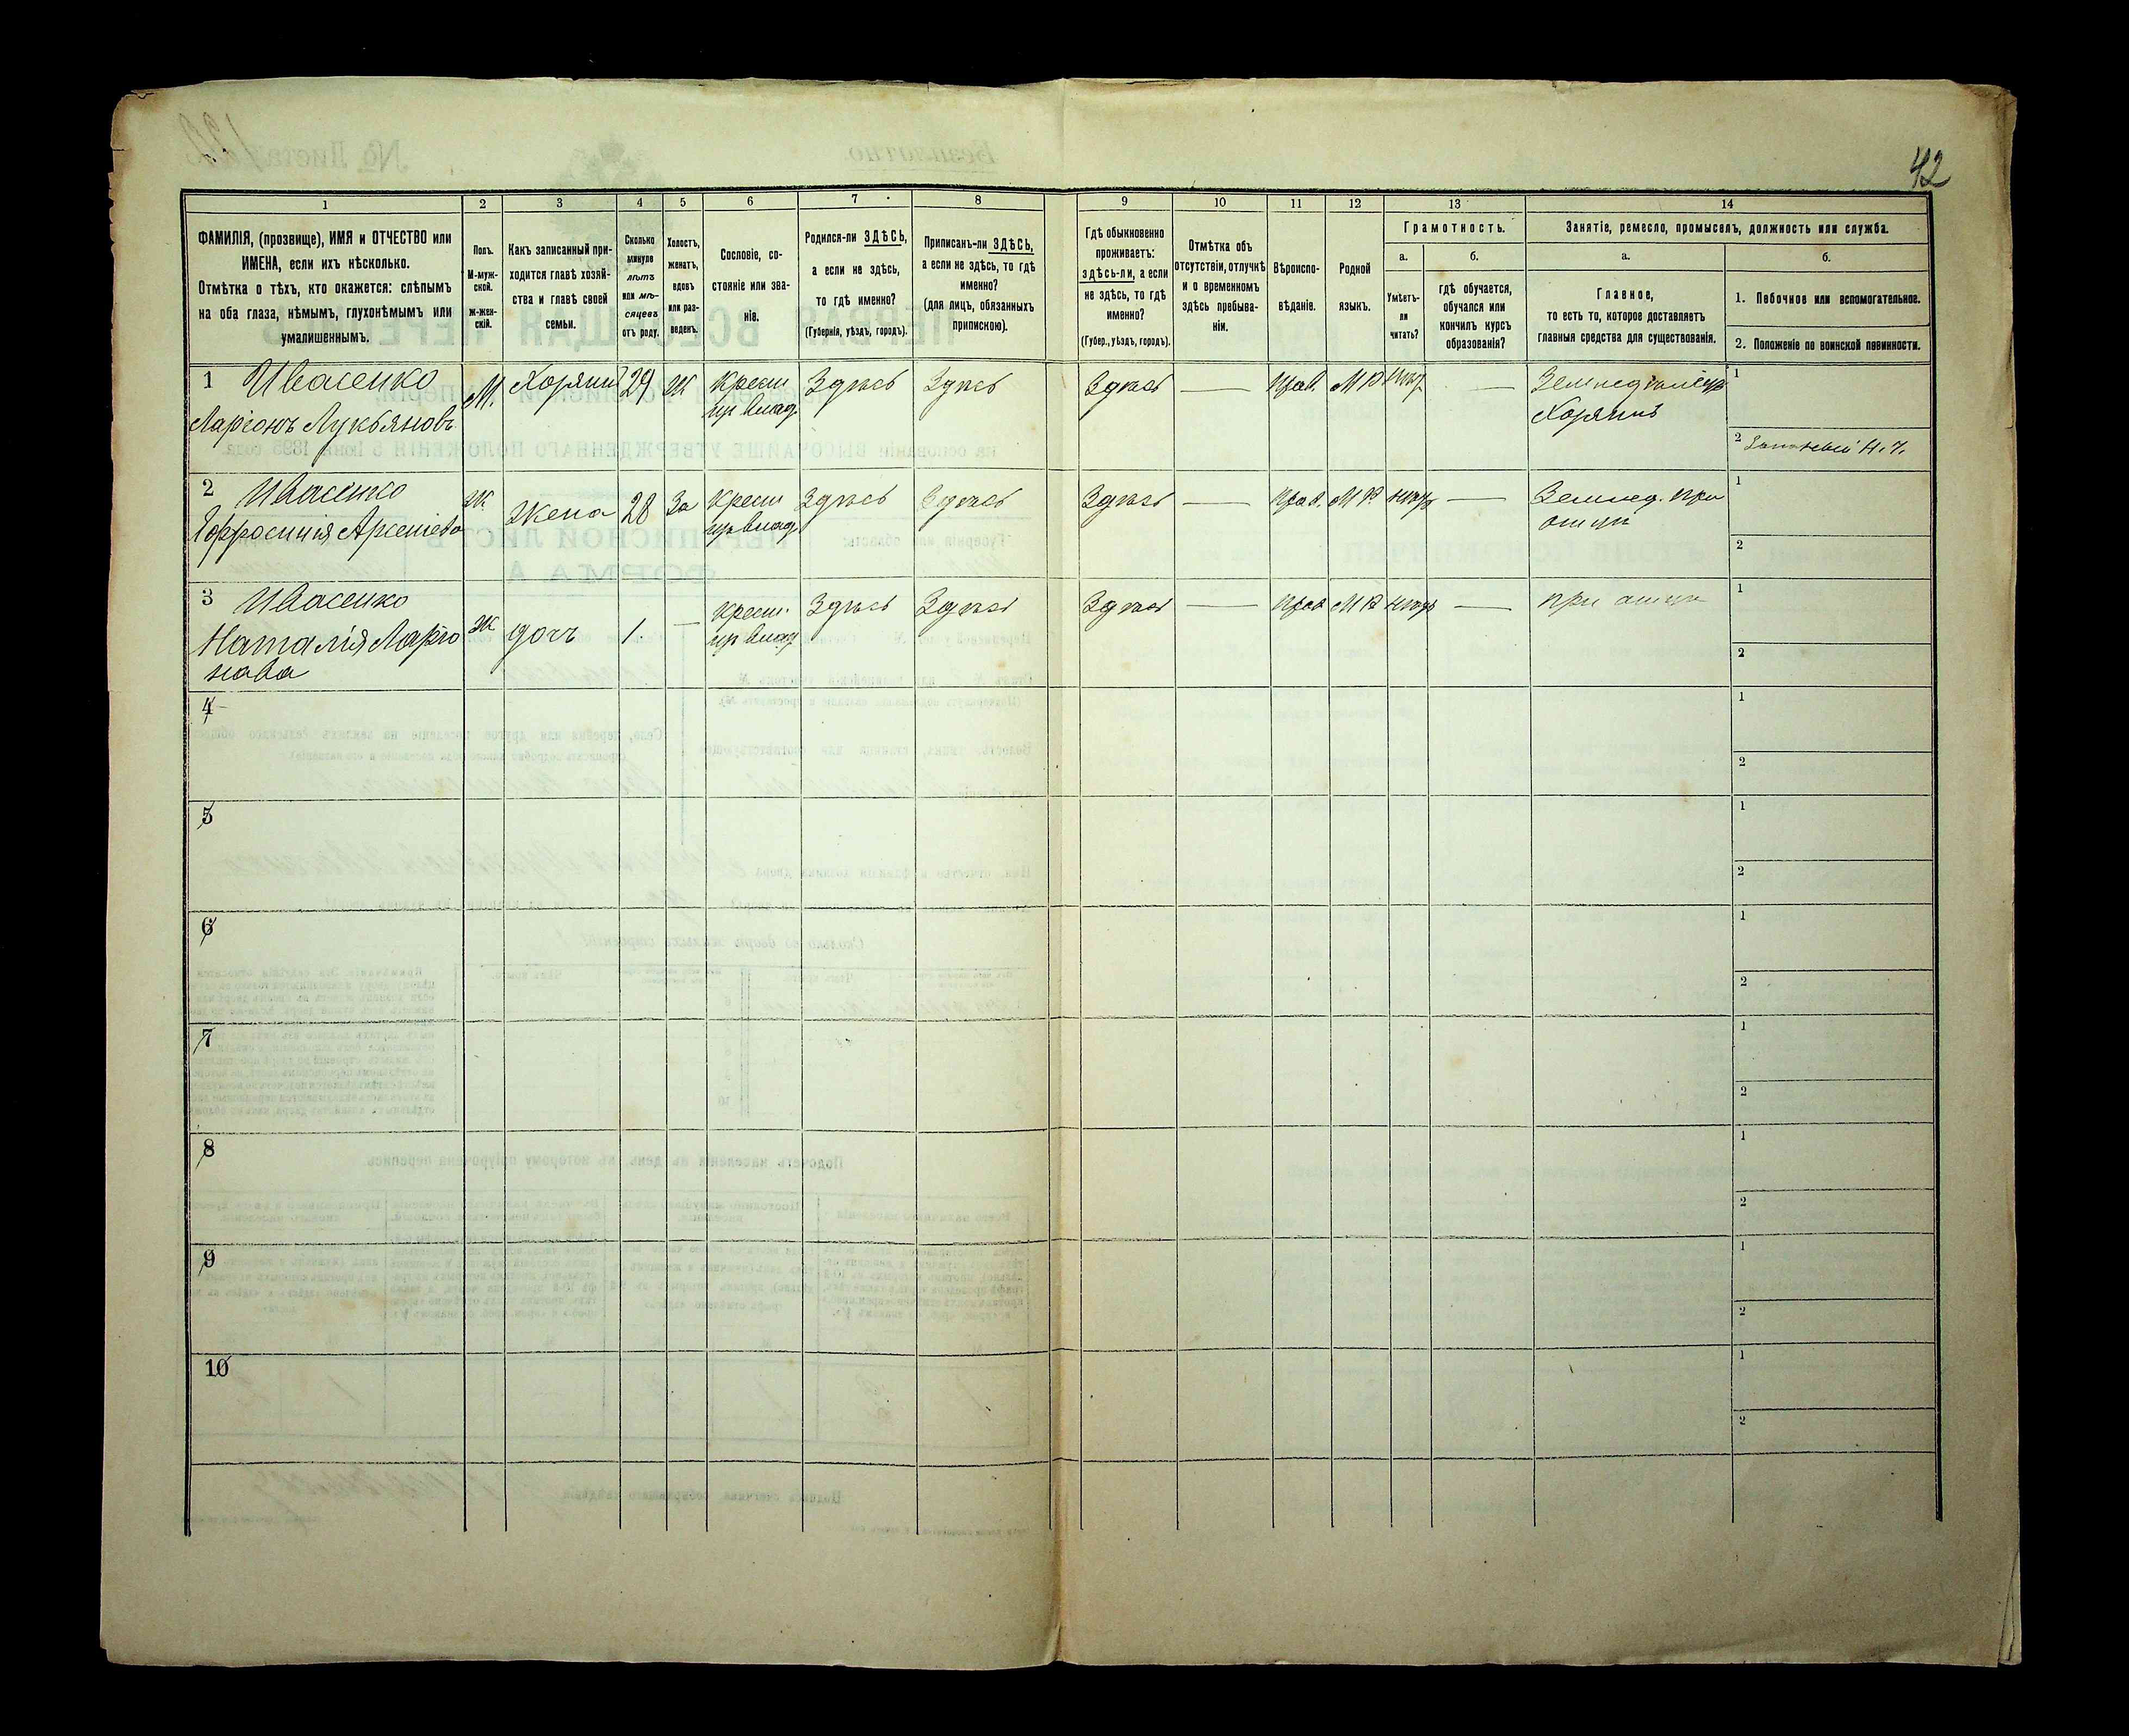 42
1 2 3 4 5 6 7 8 9 10 11 12 13 14
ФАМИЛІЯ, (прозвище), ИМЯ и ОТЧЕСТВО или
ИМЕНА, если ихъ нѣсколько.
Отмѣтка о тѣхъ, кто окажется: слѣпымъ
на оба глаза, нѣмымъ, глухонѣмымъ или
умалишеннымъ.
Полъ.
М-муж-
ской.
ж-жен-
скій.
Какъ записанный при-
ходится главѣ хозяй-
ства и главѣ своей
семьи.
Сколько
минуло
лѣтъ
или мѣ-
сяцевъ
отъ роду.
Холостъ,
женатъ,
вдовъ
или раз-
веденъ.
Сословіе, со-
стояніе или зва-
ніе.
Родился-ли ЗДѢСЬ,
а если не здѣсь,
то гдѣ именно?
(Губернія, уѣздъ, городъ).
Приписанъ-ли ЗДѢСЬ,
а если не здѣсь, то гдѣ
именно?
(для лицъ, обязанныхъ
припискою).
Гдѣ обыкновенно
проживаетъ:
здѣсь-ли, а если
не здѣсь, то гдѣ
именно?
(Губер., уѣздъ, городъ).
Отмѣтка объ
отсутствіи, отлучкѣ
и о временномъ
здѣсь пребыва-
ніи.
Вѣроиспо-
вѣданіе.
Родной
языкъ.
Грамотность.
а.
Умѣетъ-
ли
читать?
б.
гдѣ обучается,
обучался или
кончилъ курсъ
образованія?
Занятіе, ремесло, промыселъ, должность или служба.
а.
Главное,
то есть то, которое доставляетъ
главныя средства для существованія.
б.
1. Побочное или вспомогательное.
2. Положеніе по воинской повинности.
1 Ивасенко
Ларіонъ Лукьяновъ
М.
Хозяинъ
29
Ж
Крест
Здѣсь
Здѣсь
Здѣсь
—
Прав.
М Р
—
Земледѣлецъ
Хозяинъ
1
2
2 Ивасенко
Ефросинія Арсеніева
Ж
Жена
28
За
Крест
Здѣсь
Здѣсь
Здѣсь
—
Прав.
М Р.
—
Землед. при
1
2
3 Ивасенко
Наталія Ларіо
нова
Ж
дочь
1.
—
Крест.
Здѣсь
Здѣсь
Здѣсь
—
Прав
М Р
—
при отцѣ
1
2
4
1
2
5
1
2
6
1
2
7
1
2
8
1
2
9
1
2
10
1
2